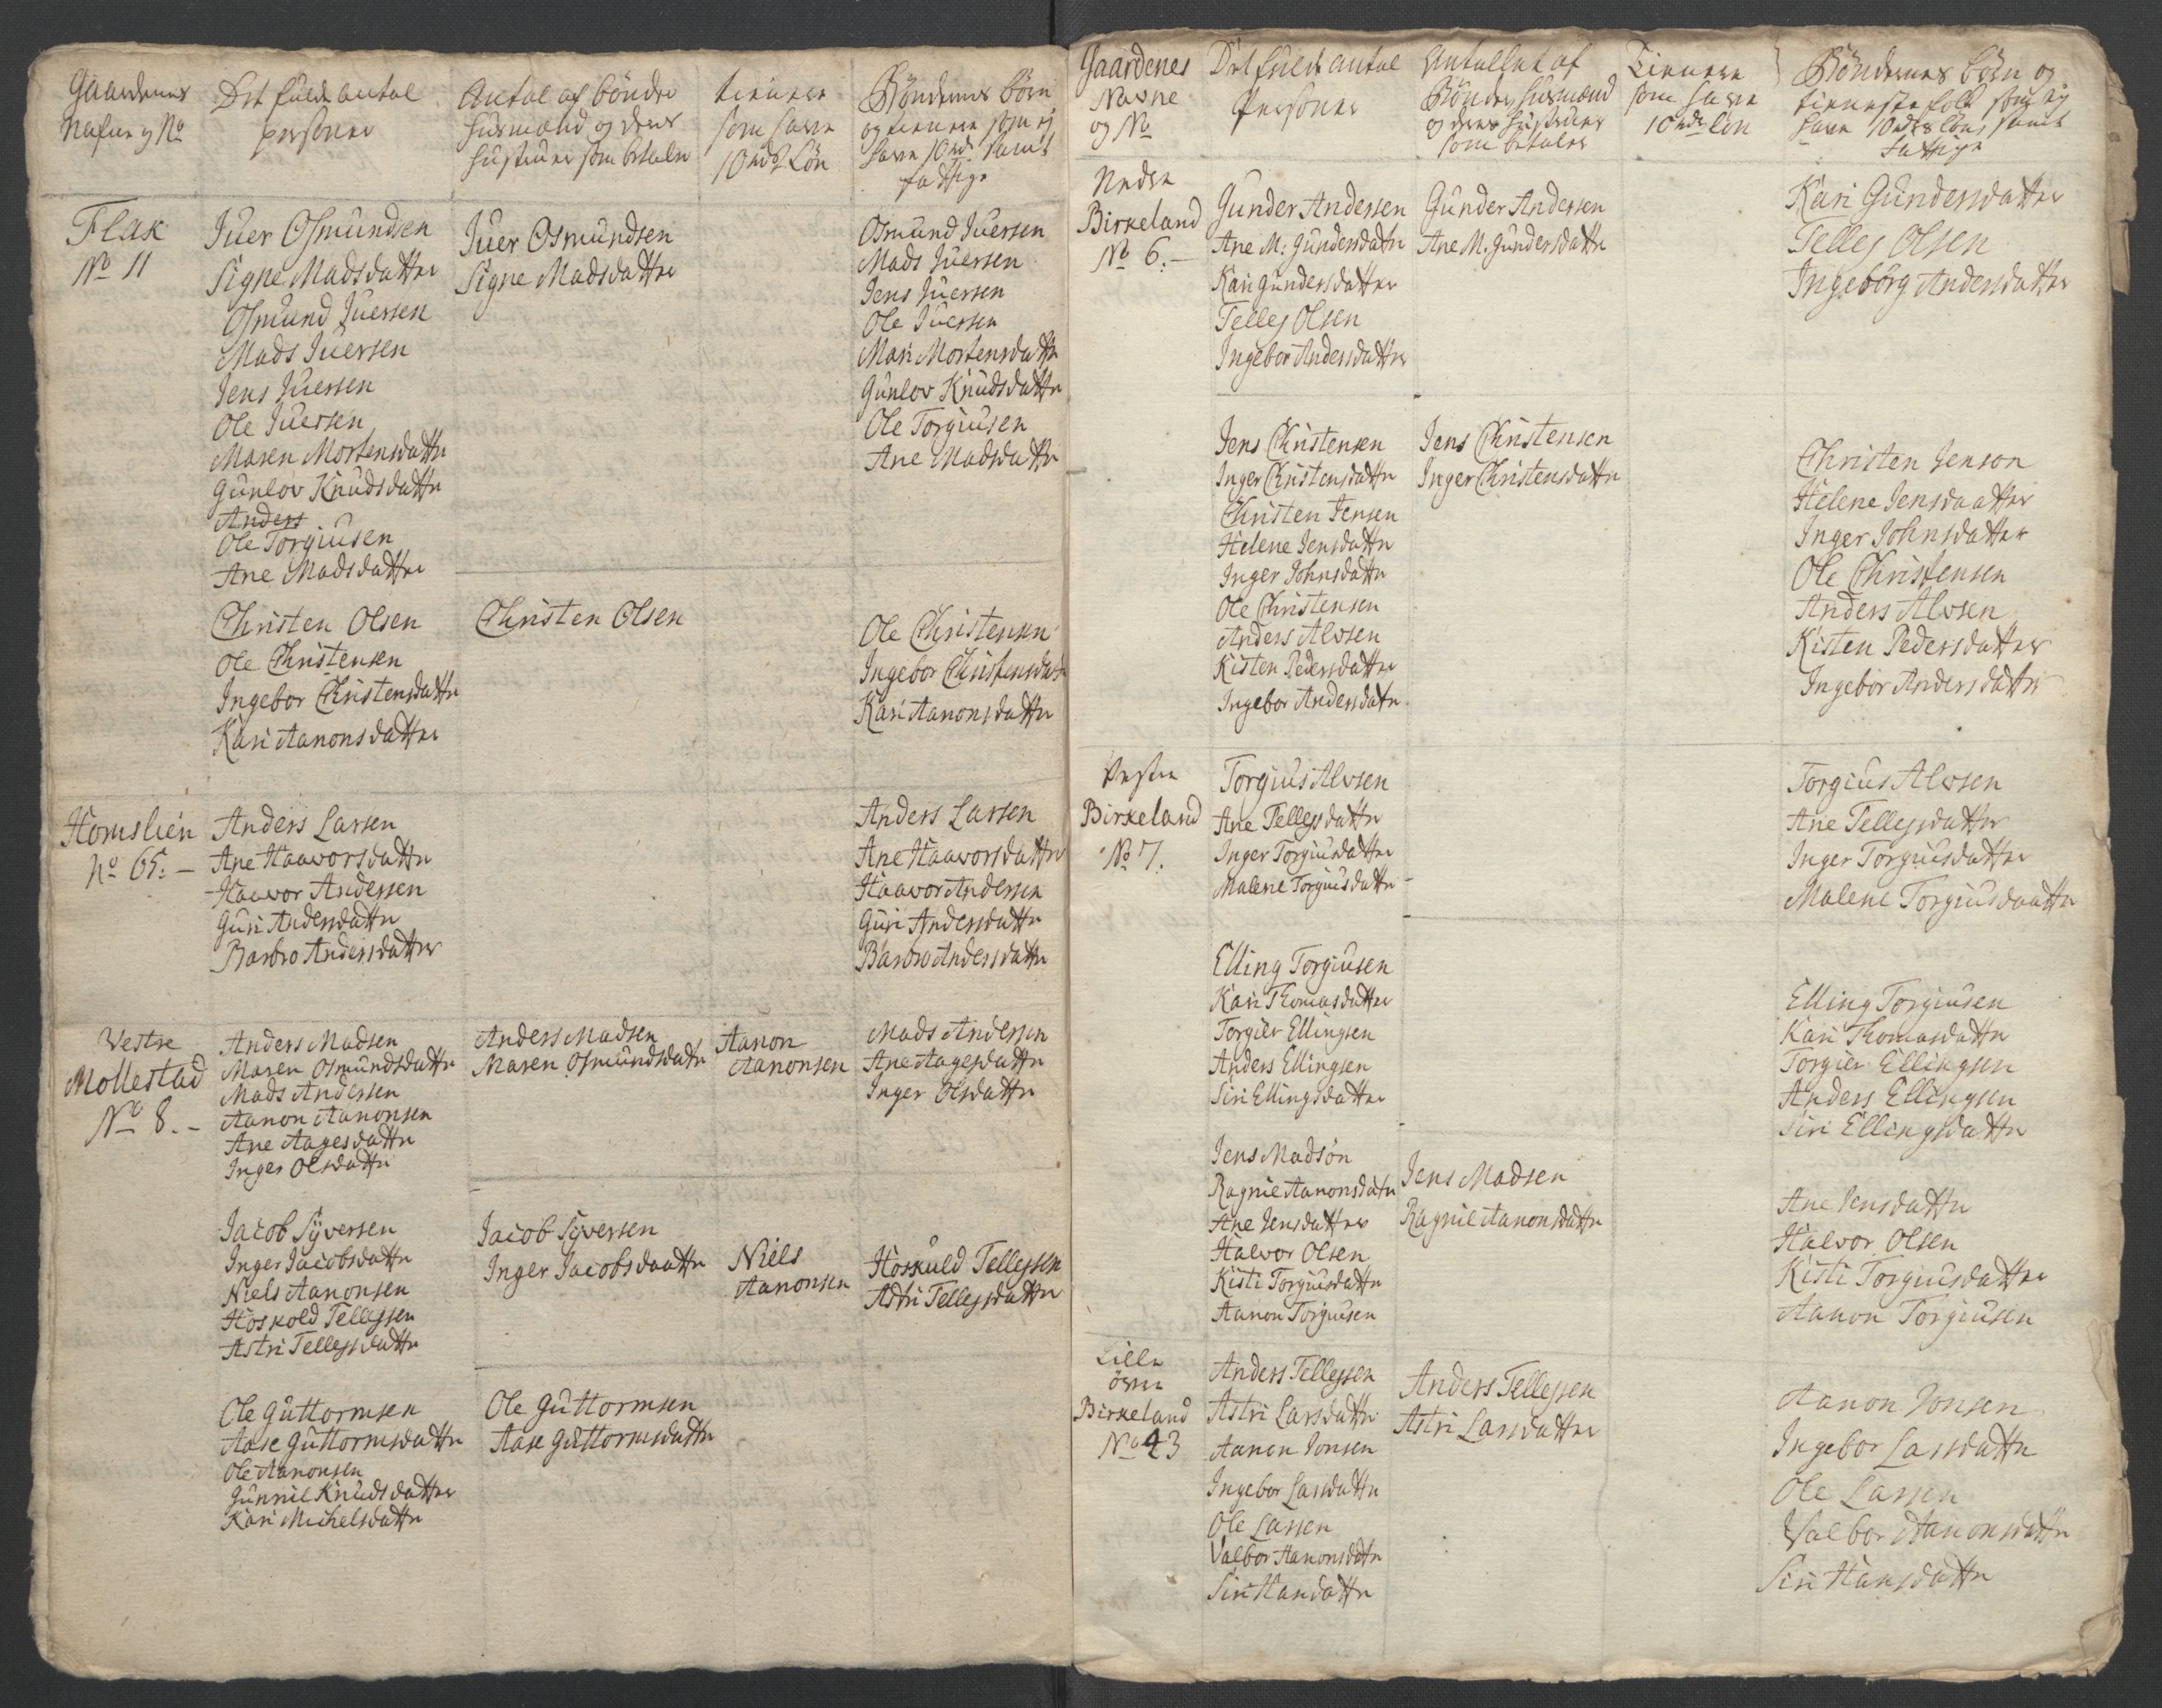 Gaardenes
Nafne og No
Det fulde antal
personer
Antal af bönder
husmænd og deres
hustruer som betaler
tienere
som have
10 rdl: Lön
Böndernes börn
og tienere som ej
have 10 rd. samt
fattige
Flak
No 11
Iver Osmundsen
Signe Madsdatter
Osmund Iversen
Mads Iversen
Jens Iversen
Ole Iversen
Maren Mortensdattr
Gunlov Knudsdattr
Anders
Ole Torgiusen
Ane Madsdatter
Iver Osmundsen
Signe Madsdatter
Osmund Iversen
Mads Iversen
Jens Iversen
Ole Iversen
Mari Mortensdattr
Gunlov Knudsdattr
Ole Torgiusen
Ane Madsdattr
Christen Olsen
Ole Christensen
Ingebor Christensdattr
Kari Aanonsdatter
Christen Olsen
Ole Christensen
Ingebor Christensdatt
Kari Aanonsdattr
Homslien
No 65: -
Anders Larsen
Ane Haavorsdattr
Haavor Andersen
Guri Andersdattr
Barbro Andersdatter
Anders Larsen
Ane Haavorsdattr
Haavor Andersen
Guri Andersdattr
Barbro Andersdattr
Westre
Mollestad
No 8. -
Anders Madsen
Maren Osmundsdattr
Mads Andersen
Aanon Aanonsen
Ane Aagesdattr
Inger Olsdattr
Anders Madsen
Maren Osmundsdattr
Aanon
Aanonsen
Mads Andersen
Ane Aagesdattr
Inger Olsdattr
Jacob Syversen
Inger Jacobsdattr
Niels Aanonsen
Hoskold Tellefsen
Astri Tellefsdattr
Jacob Syversen
Inger Jacobsdaattr
Niels
Aanonsen
Hoskuld Tellefsen
Astri Tellefsdattr
Ole Guttormsen
Aase Guttormsdattr
Ole Aanonsen
Gunnil Knudsdatter
Kari Michelsdattr
Ole Guttormsen
Aase Guttormsdattr
Gaardenes
Navne
og No
Det fulde antal
Personer
Antallet af
Bönder husmænd
og deres hustruer
som betaler
Tienere
som have
10 rdr lön
Böndernes börn og
tienestefolk som ej
have 10 rdrs löns samt
fattige
Nedre
Birkeland
No 6. -
Gunder Andersen
Ane M: Gundersdattr
Kari Gundersdatter
Tellef Olsen
Ingebor Andersdatter
Gunder Andersen
Ane M: Gundersdattr
Kari Gundersdatter
Tellef Olsen
Ingeborg Andersdatter
Jens Christensen
Inger Christensdattr
Christen Jensen
Helene Jensdattr
Inger Johnsdattr
Ole Christensen
Anders Alvsen
Kisten Pedersdatter
Ingebor Andersdatr
Jens Christensen
Inger Christensdattr
Christen Jenson
Helene Jensdaatter
Inger Johnsdatter
Ole Christensen
Anders Alvsen
Kisten Pedersdatter
Ingebor Andersdatter
Vestre
Birkeland
No 7.
Torgius Alvsen
Ane Tellefsdattr
Inger Torgiusdatter
Malene Torgiusdattr
Torgius Alvsen
Ane Tellefsdatter
Inger Torgiusdatter
Malene Torgiusdaattr
Elling Torgiusen
Kari Thomasdatter
Torgier Ellingsen
Anders Ellingsen
Siri Ellingsdatter
Elling Torgiusen
Kari Thomasdattr
Torgier Ellingsen
Anders Ellingsen
Siri Ellingsdattr
Jens Madsön
Ragnil Aanonsdatr
Ane Jensdatter
Halvor Olsen
Kisti Torgiusdattr
Aanon Torgiusen
Jens Madsen
Ragnil Aanonsdattr
Ane Jensdattr
Halvor Olsen
Kisti Torgiusdatter
Aanon Torgiusen
Lille
övre
Birkeland
No 43
Anders Tellefsen
Astri Larsdattr
Aanon Jonsen
Ingebor Larsdattr
Ole Larsen
Valbor Aanonsdatr
Siri Hansdattr
Anders Tellefsen
Astri Larsdatter
Aanon Jonsen
Ingebor Larsdattr
Ole Larsen
Valbor Aanonsdattr
Siri Hansdattr